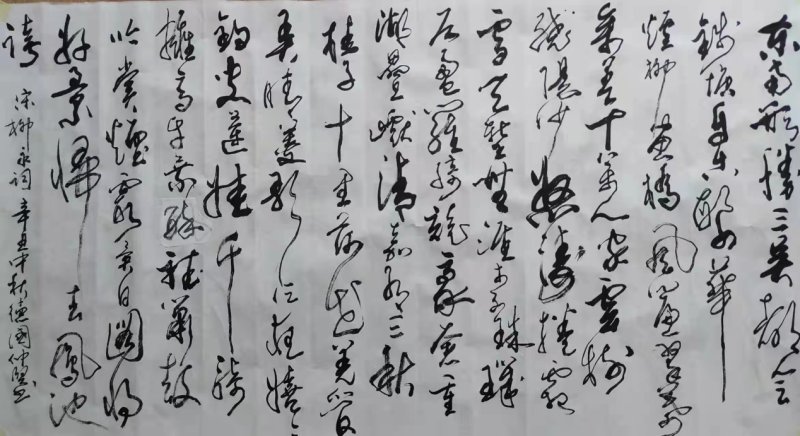 東南形勝三吳都會
錢塘自古繁華
煙柳畫橋風簾翠幕
參差十萬人家雲樹
繞堤沙怒濤捲霜
雪天塹無涯市列珠璣
戶盈羅綺競豪奢重
湖疊巘清嘉有三秋
桂子十里荷花羌管
弄晴菱歌泛夜嬉々
釣叟蓮娃千騎
擁高牙乘醉聽簫鼓
吟賞煙霞異日圖將
好景歸去鳳池
誇
宋柳永詞辛丑中秋德國